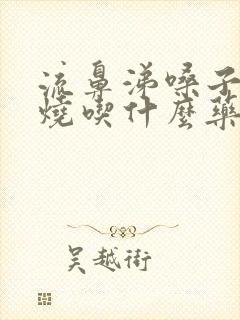 流鼻涕嗓子
燒喫什麼藥
吴越術